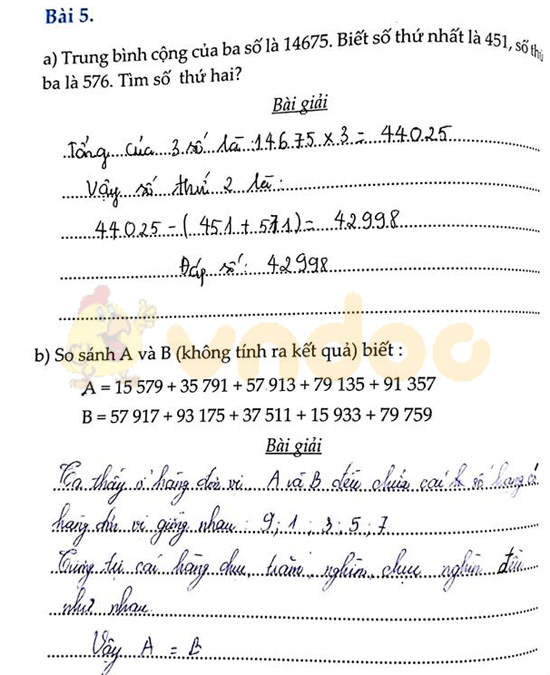 Bài 5.
a) Trung bình cộng của ba số là 14675. Biết số thứ nhất là 451, số thứ
ba là 576. Tìm số thứ hai?
Bài giải
Tổng của 3 số là: 14675 x 3 = 44025
Vậy số thứ 2 là:
44025 - (451 + 571) = 42998
Đáp số: 42998
vndoc
b) So sánh A và B (không tính ra kết quả) biết :
A = 15 579 + 35 791 + 57 913 + 79 135 + 91 357
B = 57 917 + 93 175 + 37 511 + 15 933 + 79 759
Bài giải
Ta thấy ở hàng đơn vị A và B đều chứa các số hạng có
hàng đơn vị giống nhau : 9 ; 1 ; 3 ; 5 ; 7
Tương tự các hàng chục, trăm, nghìn, chục nghìn đều
như nhau
Vậy A = B